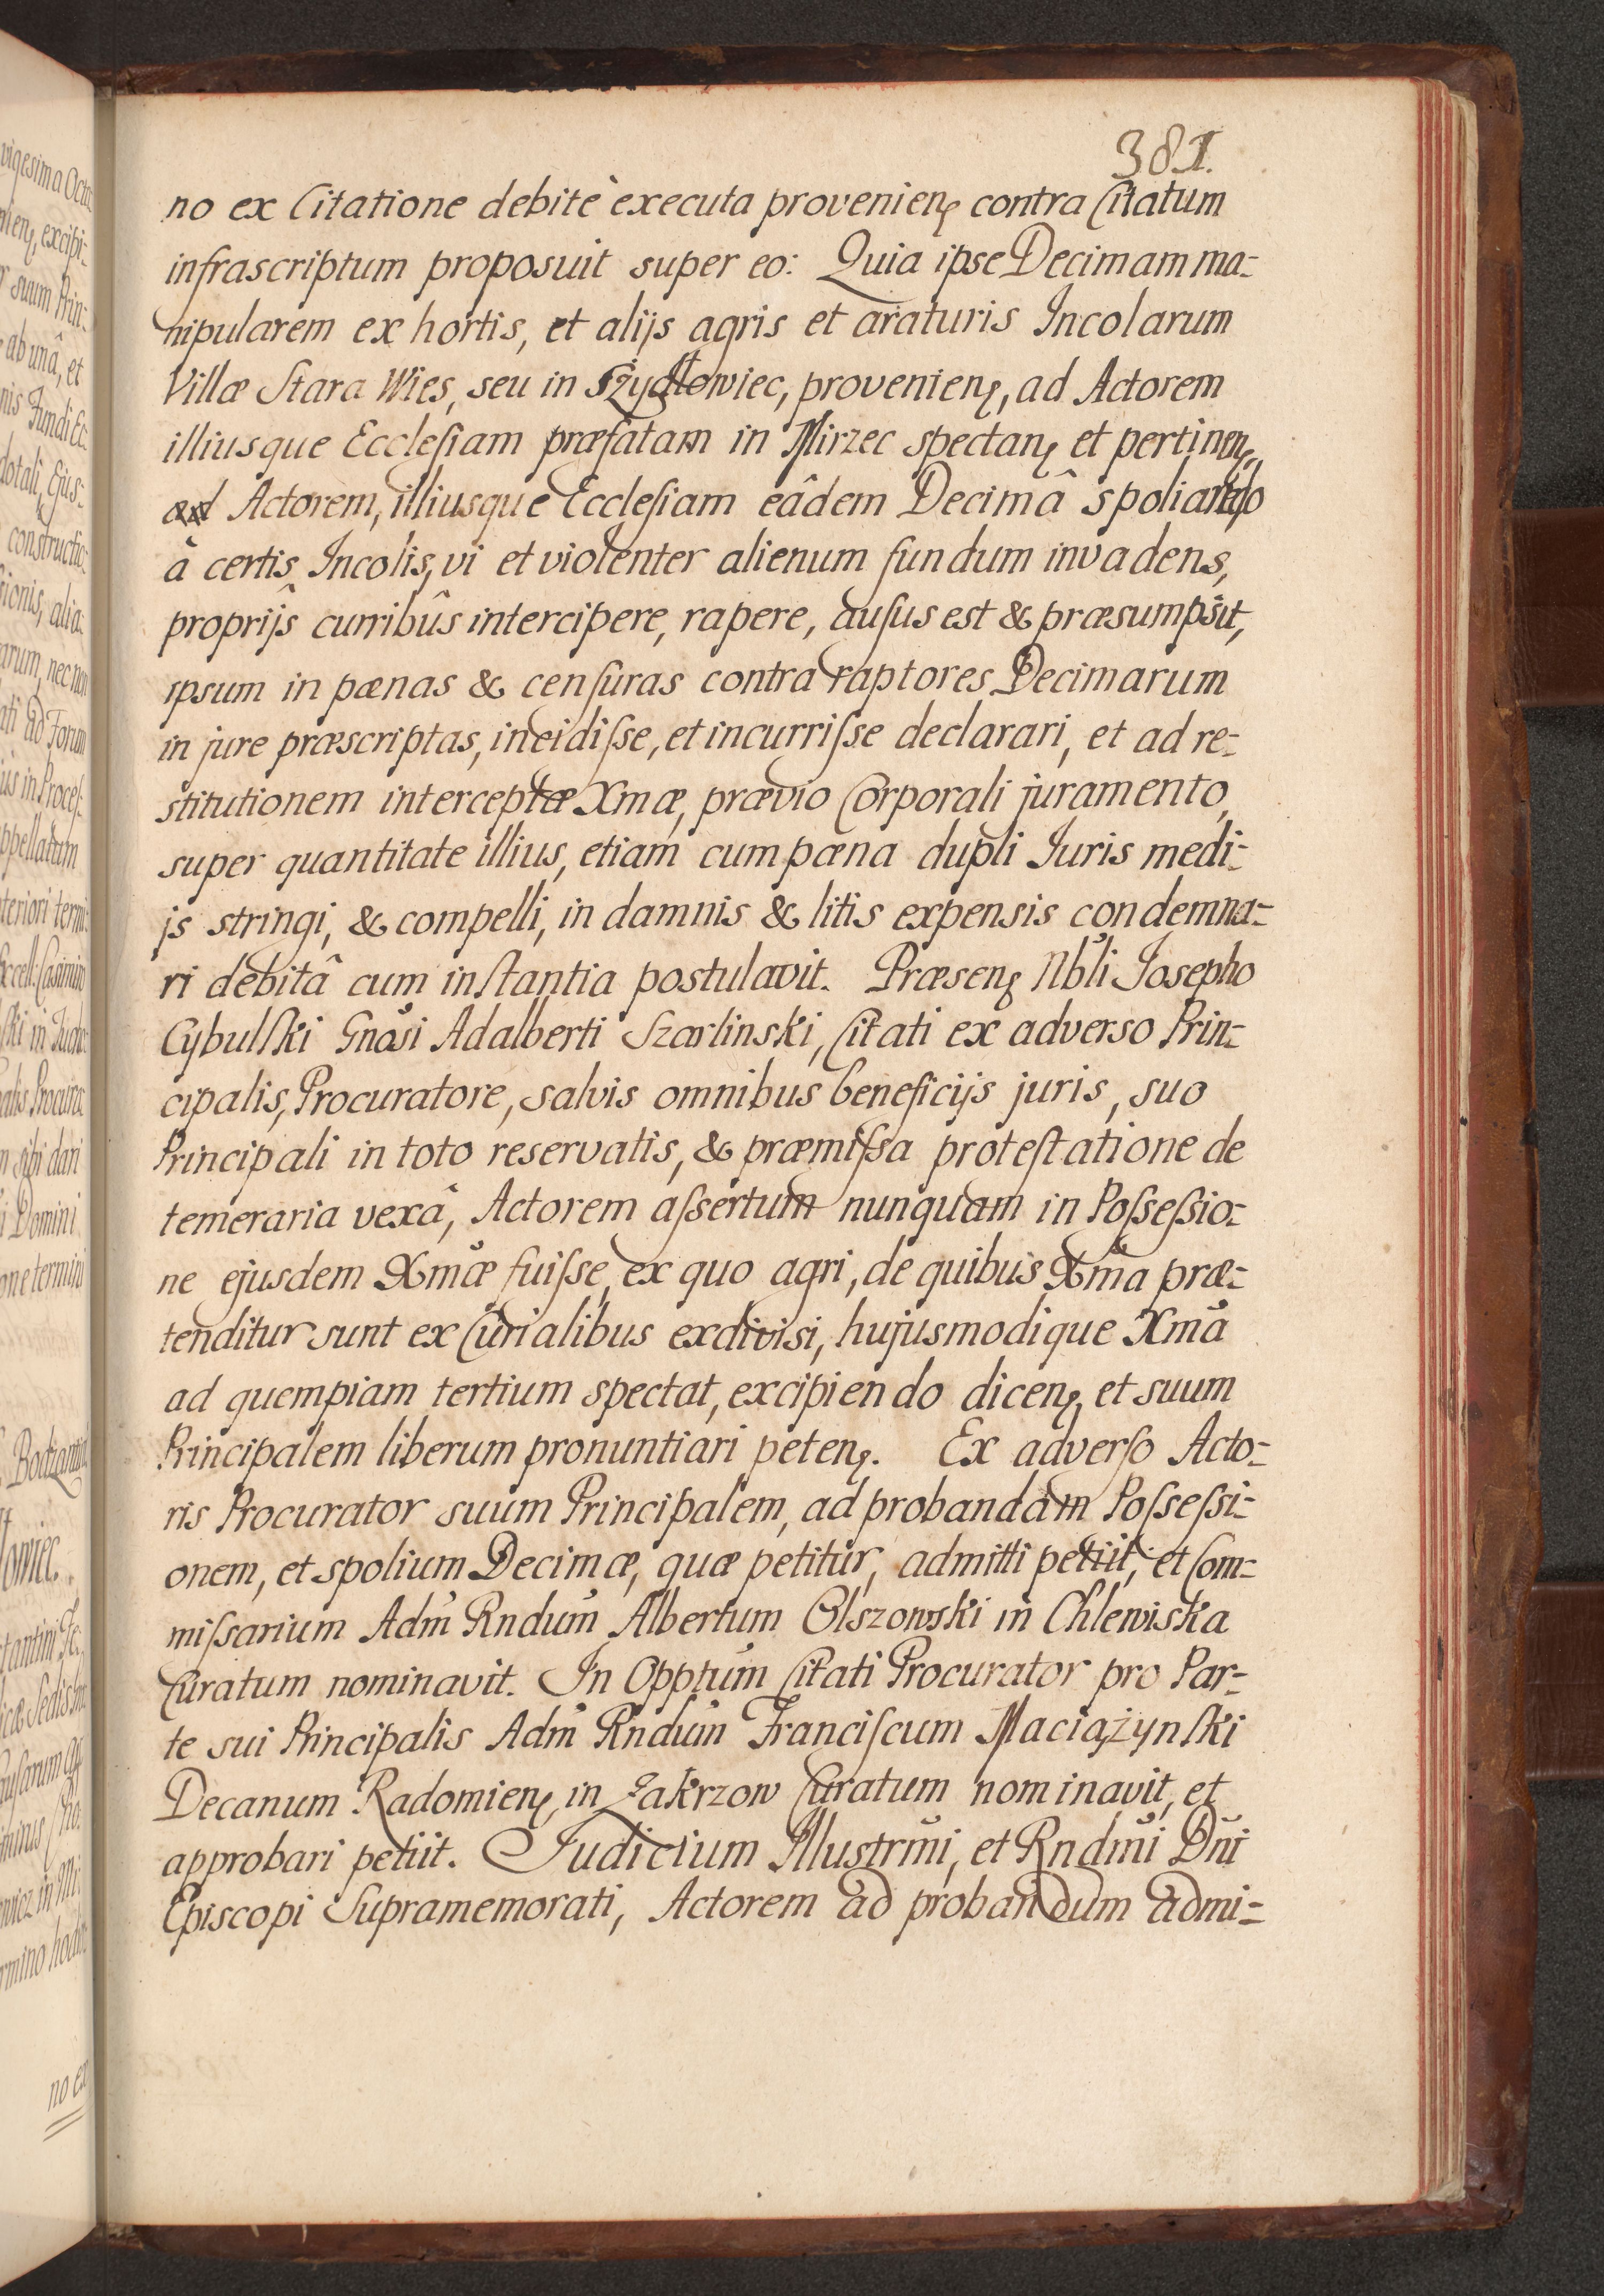 381.
no ex Citatione debitè executa provenienꝭ contra Citatum
infrascriptum proposuit super eo: Quia ipse Decimam ma=
nipularem ex hortis, et alijs agris et araturis Incolarum
Villæ Stara Wies, seu in Szydłowiec, provenienꝭ, ad Actorem
illiusque Ecclesiam præfatam in Mirzec spectanꝭ et pertinenꝭ,
Actorem, illiusque Ecclesiam eâdem Decimâ spoliando
à certis Incolis, vi et violenter alienum fundum invadens,
proprijs curribûs intercipere, rapere, ausus est & præsumpsit,
ipsum in pœnas & censuras contra raptores Decimarum
in jure præscriptas, incidisse, et incurrisse declarari, et ad re=
stitutionem interceptæ Xmæ, prævio Corporali juramento,
super quantitate illius, etiam cum pœna dupli Juris medi=
js stringi, & compelli, in damnis & litis expensis condemna=
ri debitâ cum instantia postulavit. Præsenꝭ Nbli Josepho
Cybulski Gnosi Adalberti Szarlinski, Citati ex adverso Prin=
cipalis, Procuratore, salvis omnibus beneficijs juris, suo
Principali in toto reservatis, & præmissa protestatione de
temeraria vexâ, Actorem assertum nunquam in Possessio=
ne ejusdem Xmæ fuisse, ex quo agri, de quibus Xma præ=
tenditur sunt ex Curialibus exdivisi, hujusmodique Xma
ad quempiam tertium spectat, excipiendo dicenꝭ, et suum
Principalem liberum pronuntiari petenꝭ. Ex adverso Acto=
ris Procurator suum Principalem, ad probandam Possessi=
onem, et spolium Decimæ, quæ petitur, admitti petiit, et Com=
missarium Adm̃ Rndum̃ Albertum Olszowski in Chlewiska
Curatum nominavit. In Opptum̃ Citati Procurator pro Par=
te sui Principalis Adm̃ Rndum̃ Franciscum Maciążynski
Decanum Radomienꝭ, in Zakrzow Curatum nominavit, et
approbari petiit. Judicium Illustrm̃i, et Rndm̃i Dn̄i
Episcopi Supramemorati, Actorem ad probandum admi=